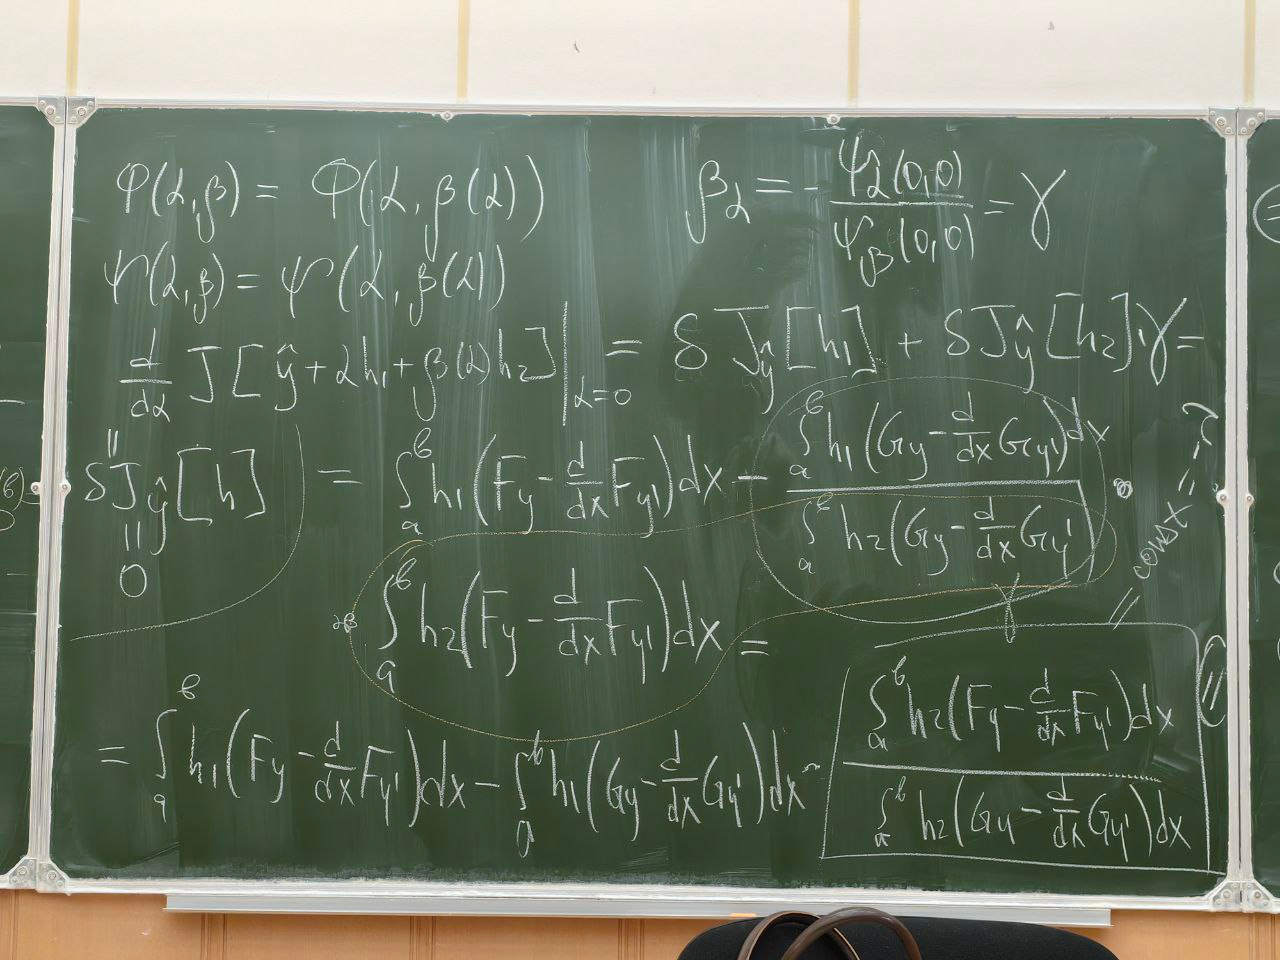 φ(α,β) = Φ(α, β(α))
β_α = - ψ_α(0,0) / ψ_β(0,0) = γ
ψ(α,β) = ψ(α, β(α))
d/dα J[ŷ + αh₁ + β(α)h₂] |_{α=0} = δJ_ŷ[h₁] + δJ_ŷ[h₂]·γ =
|| δJ_ŷ[h] = ∫_a^b h₁(F_y - d/dx F_y')dx - ∫_a^b h₁(G_y - d/dx G_y')dx / ∫_a^b h₂(G_y - d/dx G_y') ·
|| 0
γ
|| const = -λ
∫_a^b h₂(F_y - d/dx F_y')dx =
= ∫_a^b h₁(F_y - d/dx F_y')dx - ∫_a^b h₁(G_y - d/dx G_y')dx · ∫_a^b h₂(F_y - d/dx F_y')dx / ∫_a^b h₂(G_y - d/dx G_y')dx